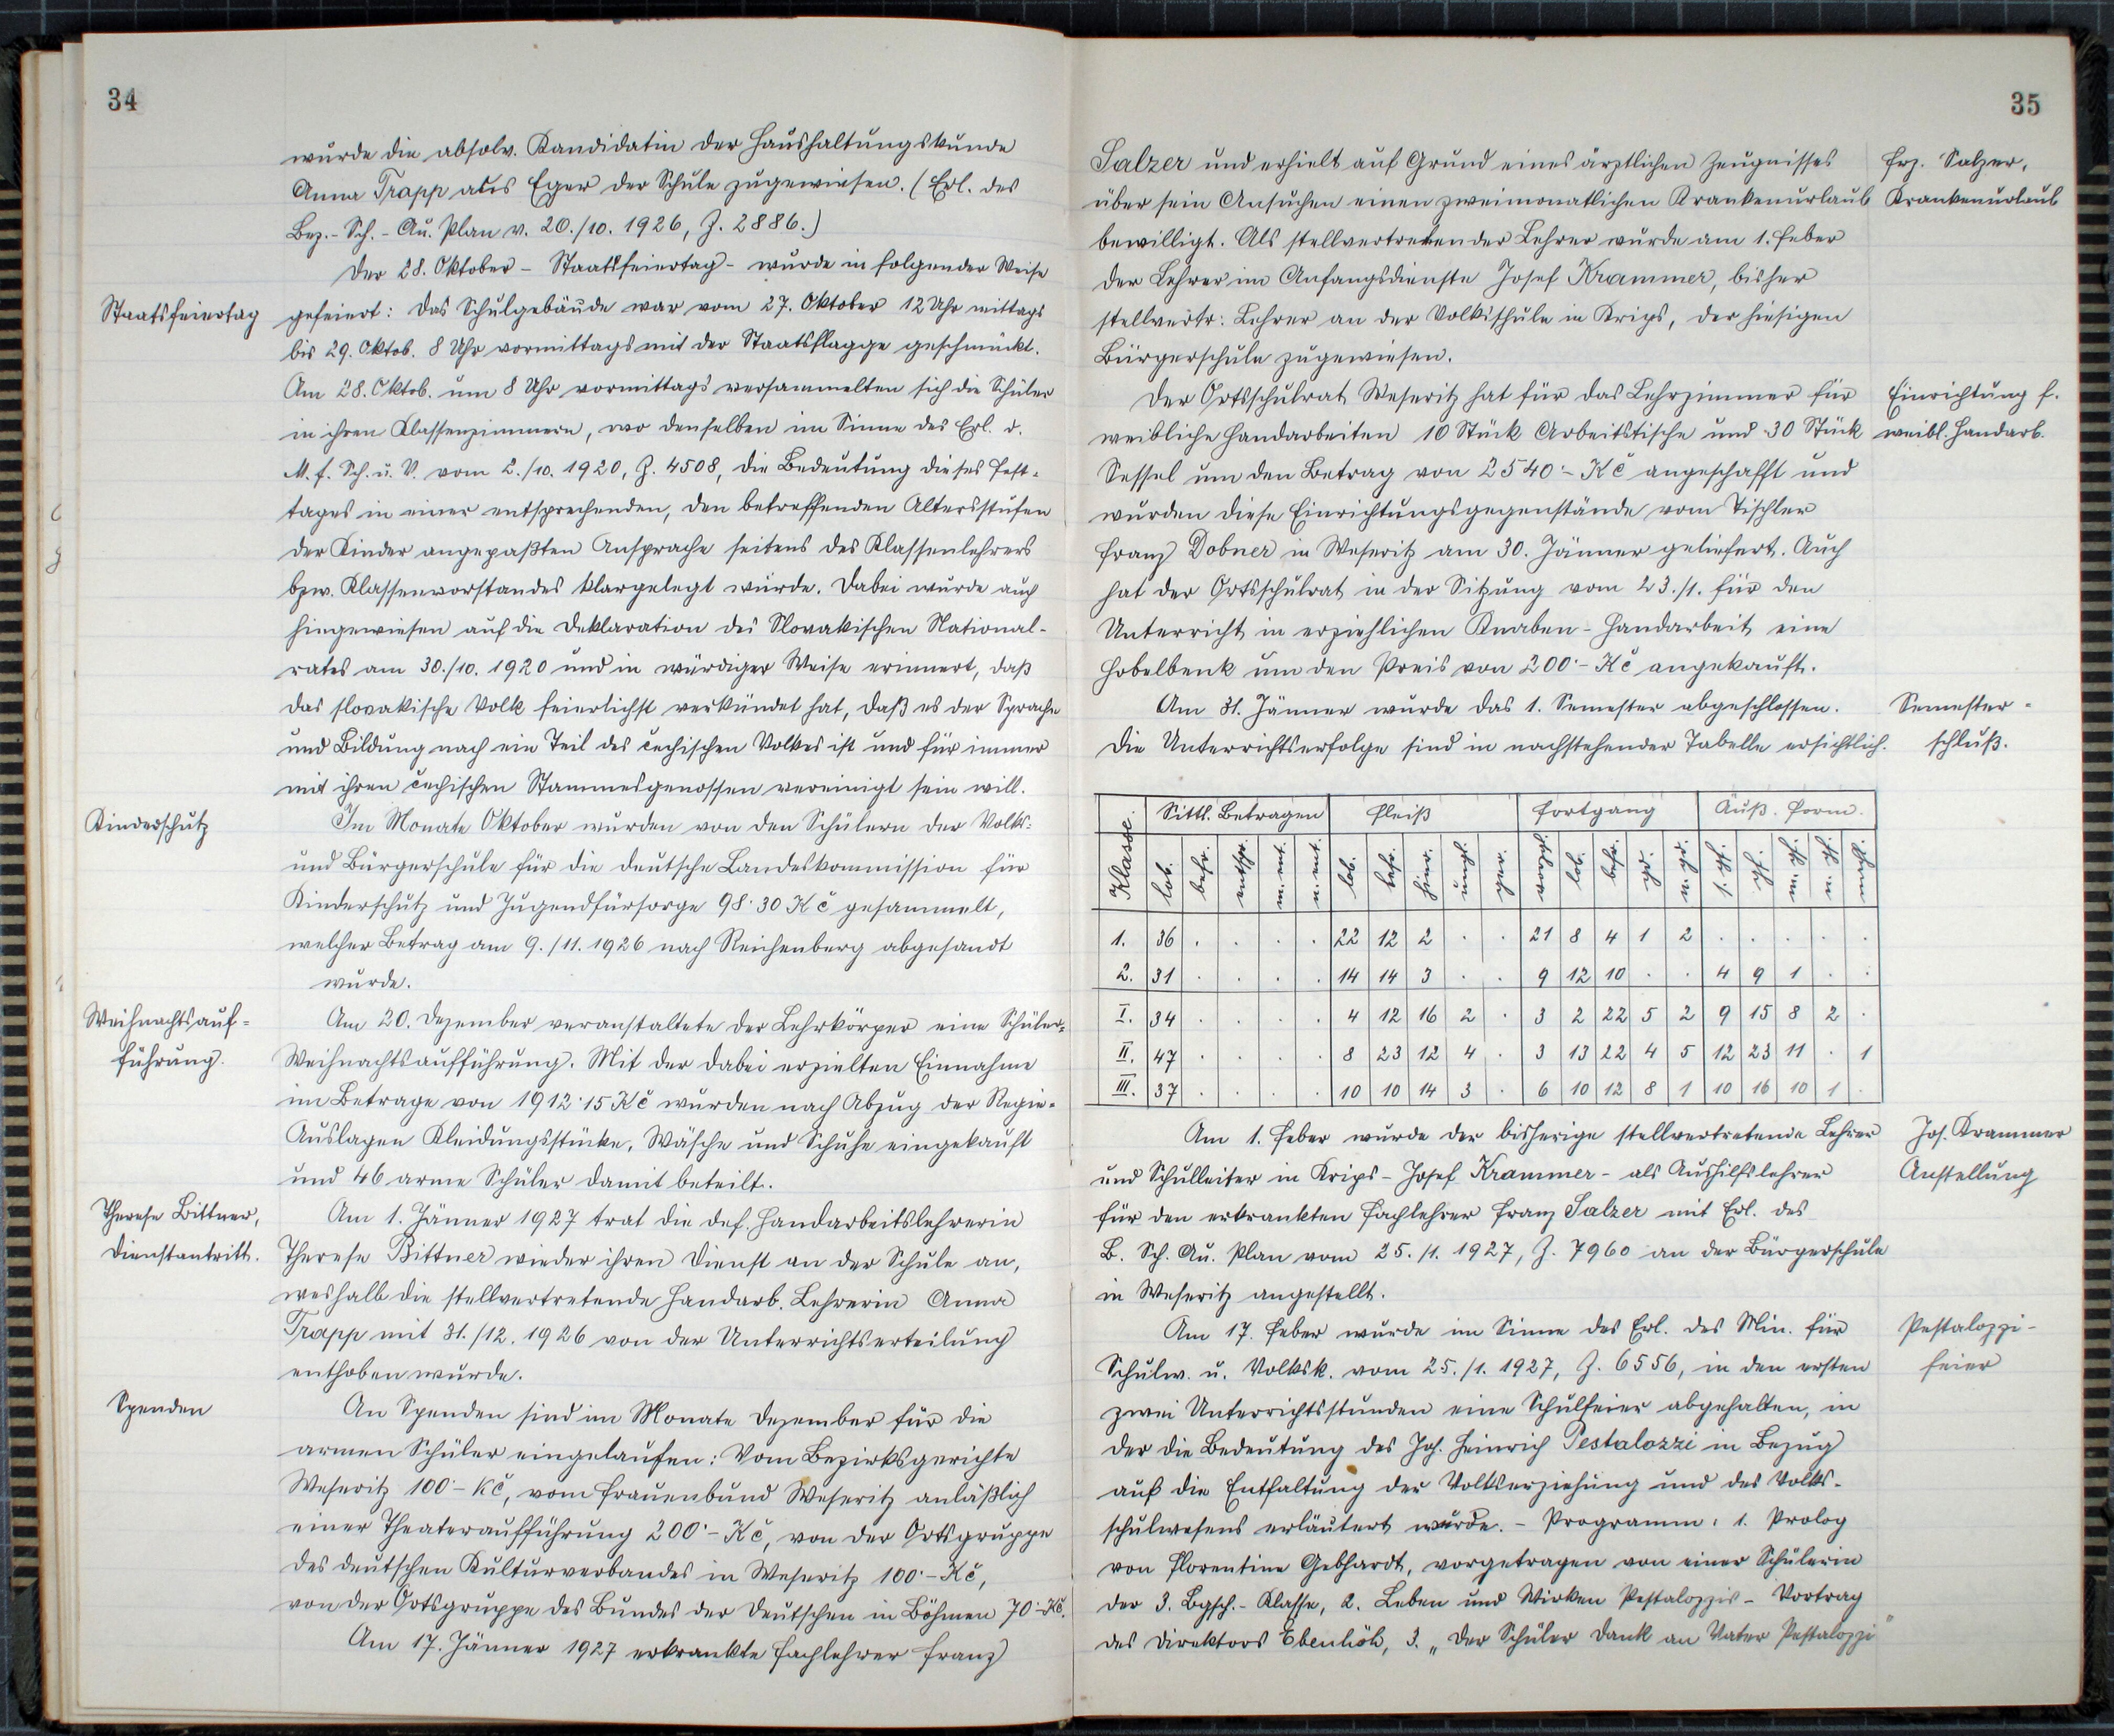 34
wurde die absolv. Kandidatin der Haushaltungskunde
Anna Trapp aus Eger der Schule zugewiesen. (Erl. des
Bez.- Sch.- Au. Plan v. 20./10. 1926, Z. 2886.)
Der 28. Oktober – Staatsfeiertag – wurde in folgender Weise
Staatsfeiertag
gefeiert: Das Schulgebäude war vom 27. Oktober 12 Uhr mittags
bis 29. Oktob. 8 Uhr vormittags mit der Staatsflagge geschmückt.
Am 28. Oktob. um 8 Uhr vormittags versammelten sich die Schüler
in ihren Klassenzimmern, wo denselben im Sinne des Erl. d.
M. f. Sch. u. V. vom 2./10. 1920, Z. 4508, die Bedeutung dieses Fest-
tages in einer entsprechenden, den betreffenden Altersstufen
der Kinder angepaßten Ansprache seitens des Klassenlehrers
bzw. Klassenvorstandes klargelegt wurde. Dabei wurde auch
hingewiesen auf die Deklaration des Slovakischen National-
rates am 30./10. 1920 und in würdiger Weise erinnert, daß
das slovakische Volk feierlichst verkündet hat, daß es der Sprache
und Bildung nach ein Teil des čechischen Volkes ist und für immer
mit ihren čechischen Stammesgenossen vereinigt sein will.
Kinderschutz
Im Monate Oktober wurden von den Schülern der Volks-
und Bürgerschule für die deutsche Landeskommission für
Kinderschutz und Jugendfürsorge 98·30 Kč gesammelt,
welcher Betrag am 9./11. 1926 nach Reichenberg abgesandt
wurde.
Weihnachtsauf-
führung.
Am 20. Dezember veranstaltete der Lehrkörper eine Schüler-
Weihnachtsaufführung. Mit der dabei erzielten Einnahme
im Betrage von 1912·15 Kč wurden nach Abzug der Regie-
Auslagen Kleidungsstücke, Wäsche und Schuhe eingekauft
und 46 arme Schüler damit beteilt.
Therese Bittner,
Dienstantritt.
Am 1. Jänner 1927 trat die def. Handarbeitslehrerin
Therese Bittner wieder ihren Dienst an der Schule an,
weshalb die stellvertretende Handarb. Lehrerin Anna
Trapp mit 31./12. 1926 von der Unterrichtserteilung
enthoben wurde.
Spenden
An Spenden sind im Monate Dezember für die
armen Schüler eingelaufen: Vom Bezirksgerichte
Weseritz 100·– Kč, vom Frauenbund Weseritz anläßlich
einer Theateraufführung 200·– Kč, von der Ortsgruppe
des deutschen Kulturverbandes in Weseritz 100·– Kč,
von der Ortsgruppe des Bundes der Deutschen in Böhmen 70·– Kč.
Am 17. Jänner 1927 erkrankte Fachlehrer Franz
35
Salzer und erhielt auf Grund eines ärztlichen Zeugnisses
über sein Ansuchen einen zweimonatlichen Krankenurlaub
bewilligt. Als stellvertretender Lehrer wurde am 1. Feber
der Lehrer im Anfangsdienste Josef Krammer, bisher
stellvertr. Lehrer an der Volksschule in Krips, der hiesigen
Bürgerschule zugewiesen.
Frz. Salzer,
Krankenurlaub
Der Ortsschulrat Weseritz hat für das Lehrzimmer für
weibliche Handarbeiten 10 Stück Arbeitstische und 30 Stück
Sessel um den Betrag von 2540·– Kč angeschafft und
wurden diese Einrichtungsgegenstände vom Tischler
Franz Dobner in Weseritz am 30. Jänner geliefert. Auch
hat der Ortsschulrat in der Sitzung vom 23./1. für den
Unterricht in erziehlichen Knaben-Handarbeit eine
Hobelbank um den Preis von 200·– Kč angekauft.
Einrichtung f.
weibl. Handarb.
Am 31. Jänner wurde das 1. Semester abgeschlossen.
Die Unterrichtserfolge sind in nachstehender Tabelle ersichtlich.
Semester-
schluß.
Klasse. Sittl. Betragen Fleiß Fortgang Äuß. Form.
lob. befr. entspr. m. ent. n. ent. lob. befr. hinr. ungl. ger. vorzgl. lob. befr. gd. n. gd. s. gf. gf. m. gf. n. gf. nachl.
1. 36 . . . . 22 12 2 . . 21 8 4 1 2 . . . . .
2. 31 . . . . 14 14 3 . . 9 12 10 . . 4 9 1 . .
I. 34 . . . . 4 12 16 2 . 3 2 22 5 2 9 15 8 2 .
II. 47 . . . . 8 23 12 4 . 3 13 22 4 5 12 23 11 . 1
III. 37 . . . . 10 10 14 3 . 6 10 12 8 1 10 16 10 1 .
Am 1. Feber wurde der bisherige stellvertretende Lehrer
und Schulleiter in Krips – Josef Krammer – als Aushilfslehrer
für den erkrankten Fachlehrer Franz Salzer mit Erl. des
B. Sch. Au. Plan vom 25./1. 1927, Z. 7960 an der Bürgerschule
in Weseritz angestellt.
Jos. Krammer
Anstellung
Am 17. Feber wurde im Sinne des Erl. des Min. für
Schulw. u. Volksk. vom 25./1. 1927, Z. 6556, in den ersten
zwei Unterrichtsstunden eine Schulfeier abgehalten, in
der die Bedeutung des Joh. Heinrich Pestalozzi in Bezug
auf die Entfaltung der Volkserziehung und des Volks-
schulwesens erläutert wurde. – Programm: 1. Prolog
von Florentine Gebhardt, vorgetragen von einer Schülerin
der 3. Bgsch.- Klasse, 2. Leben und Wirken Pestalozzis – Vortrag
des Direktors Ebenhöh, 3. „Der Schüler Dank an Vater Pestalozzi"
Pestalozzi-
feier